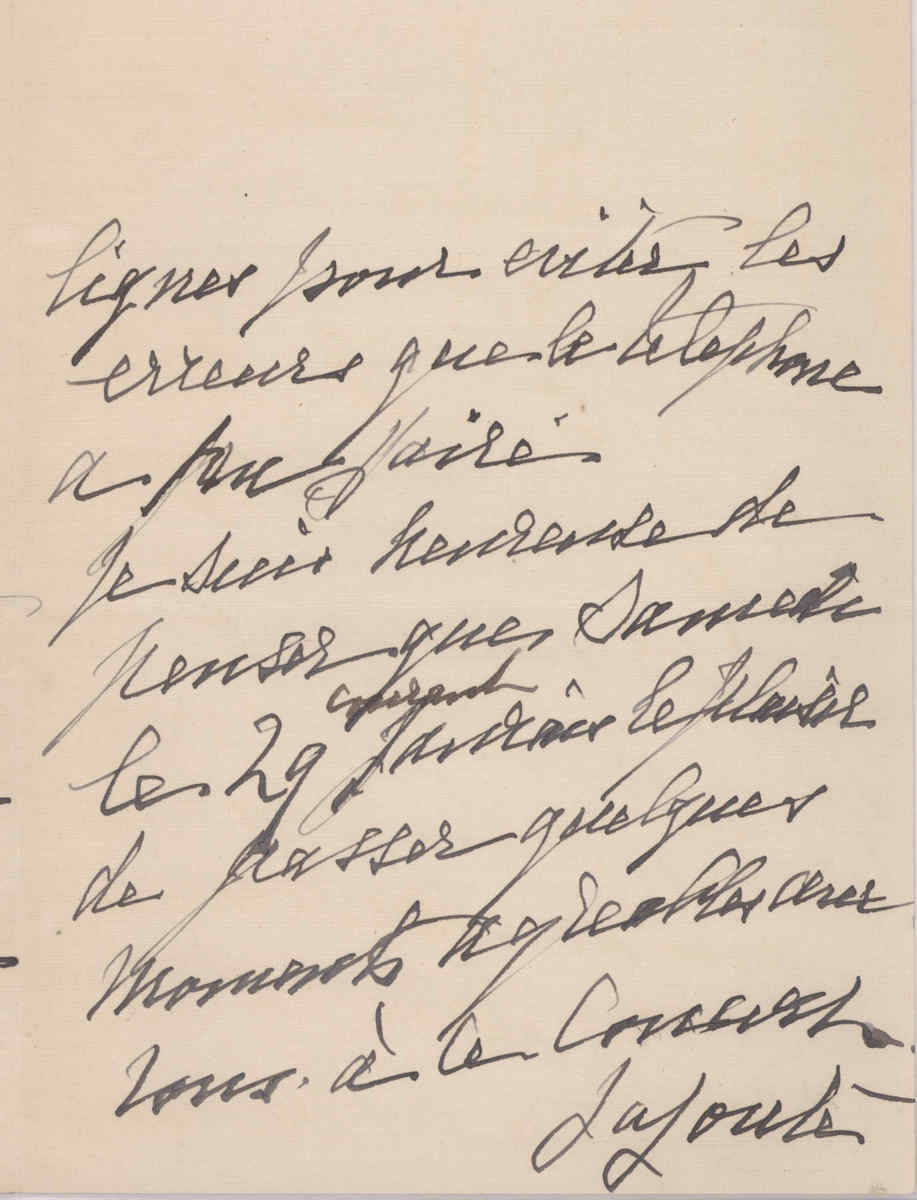 lignes pour eviter les
erreurs que le telephone
a pu faire
Je suis heureuse de
penser que Samedi
courant
le 29 j'aurais le plaisir
de passer quelques
moments agreables avec
vous à ce Concert
J'ajoute